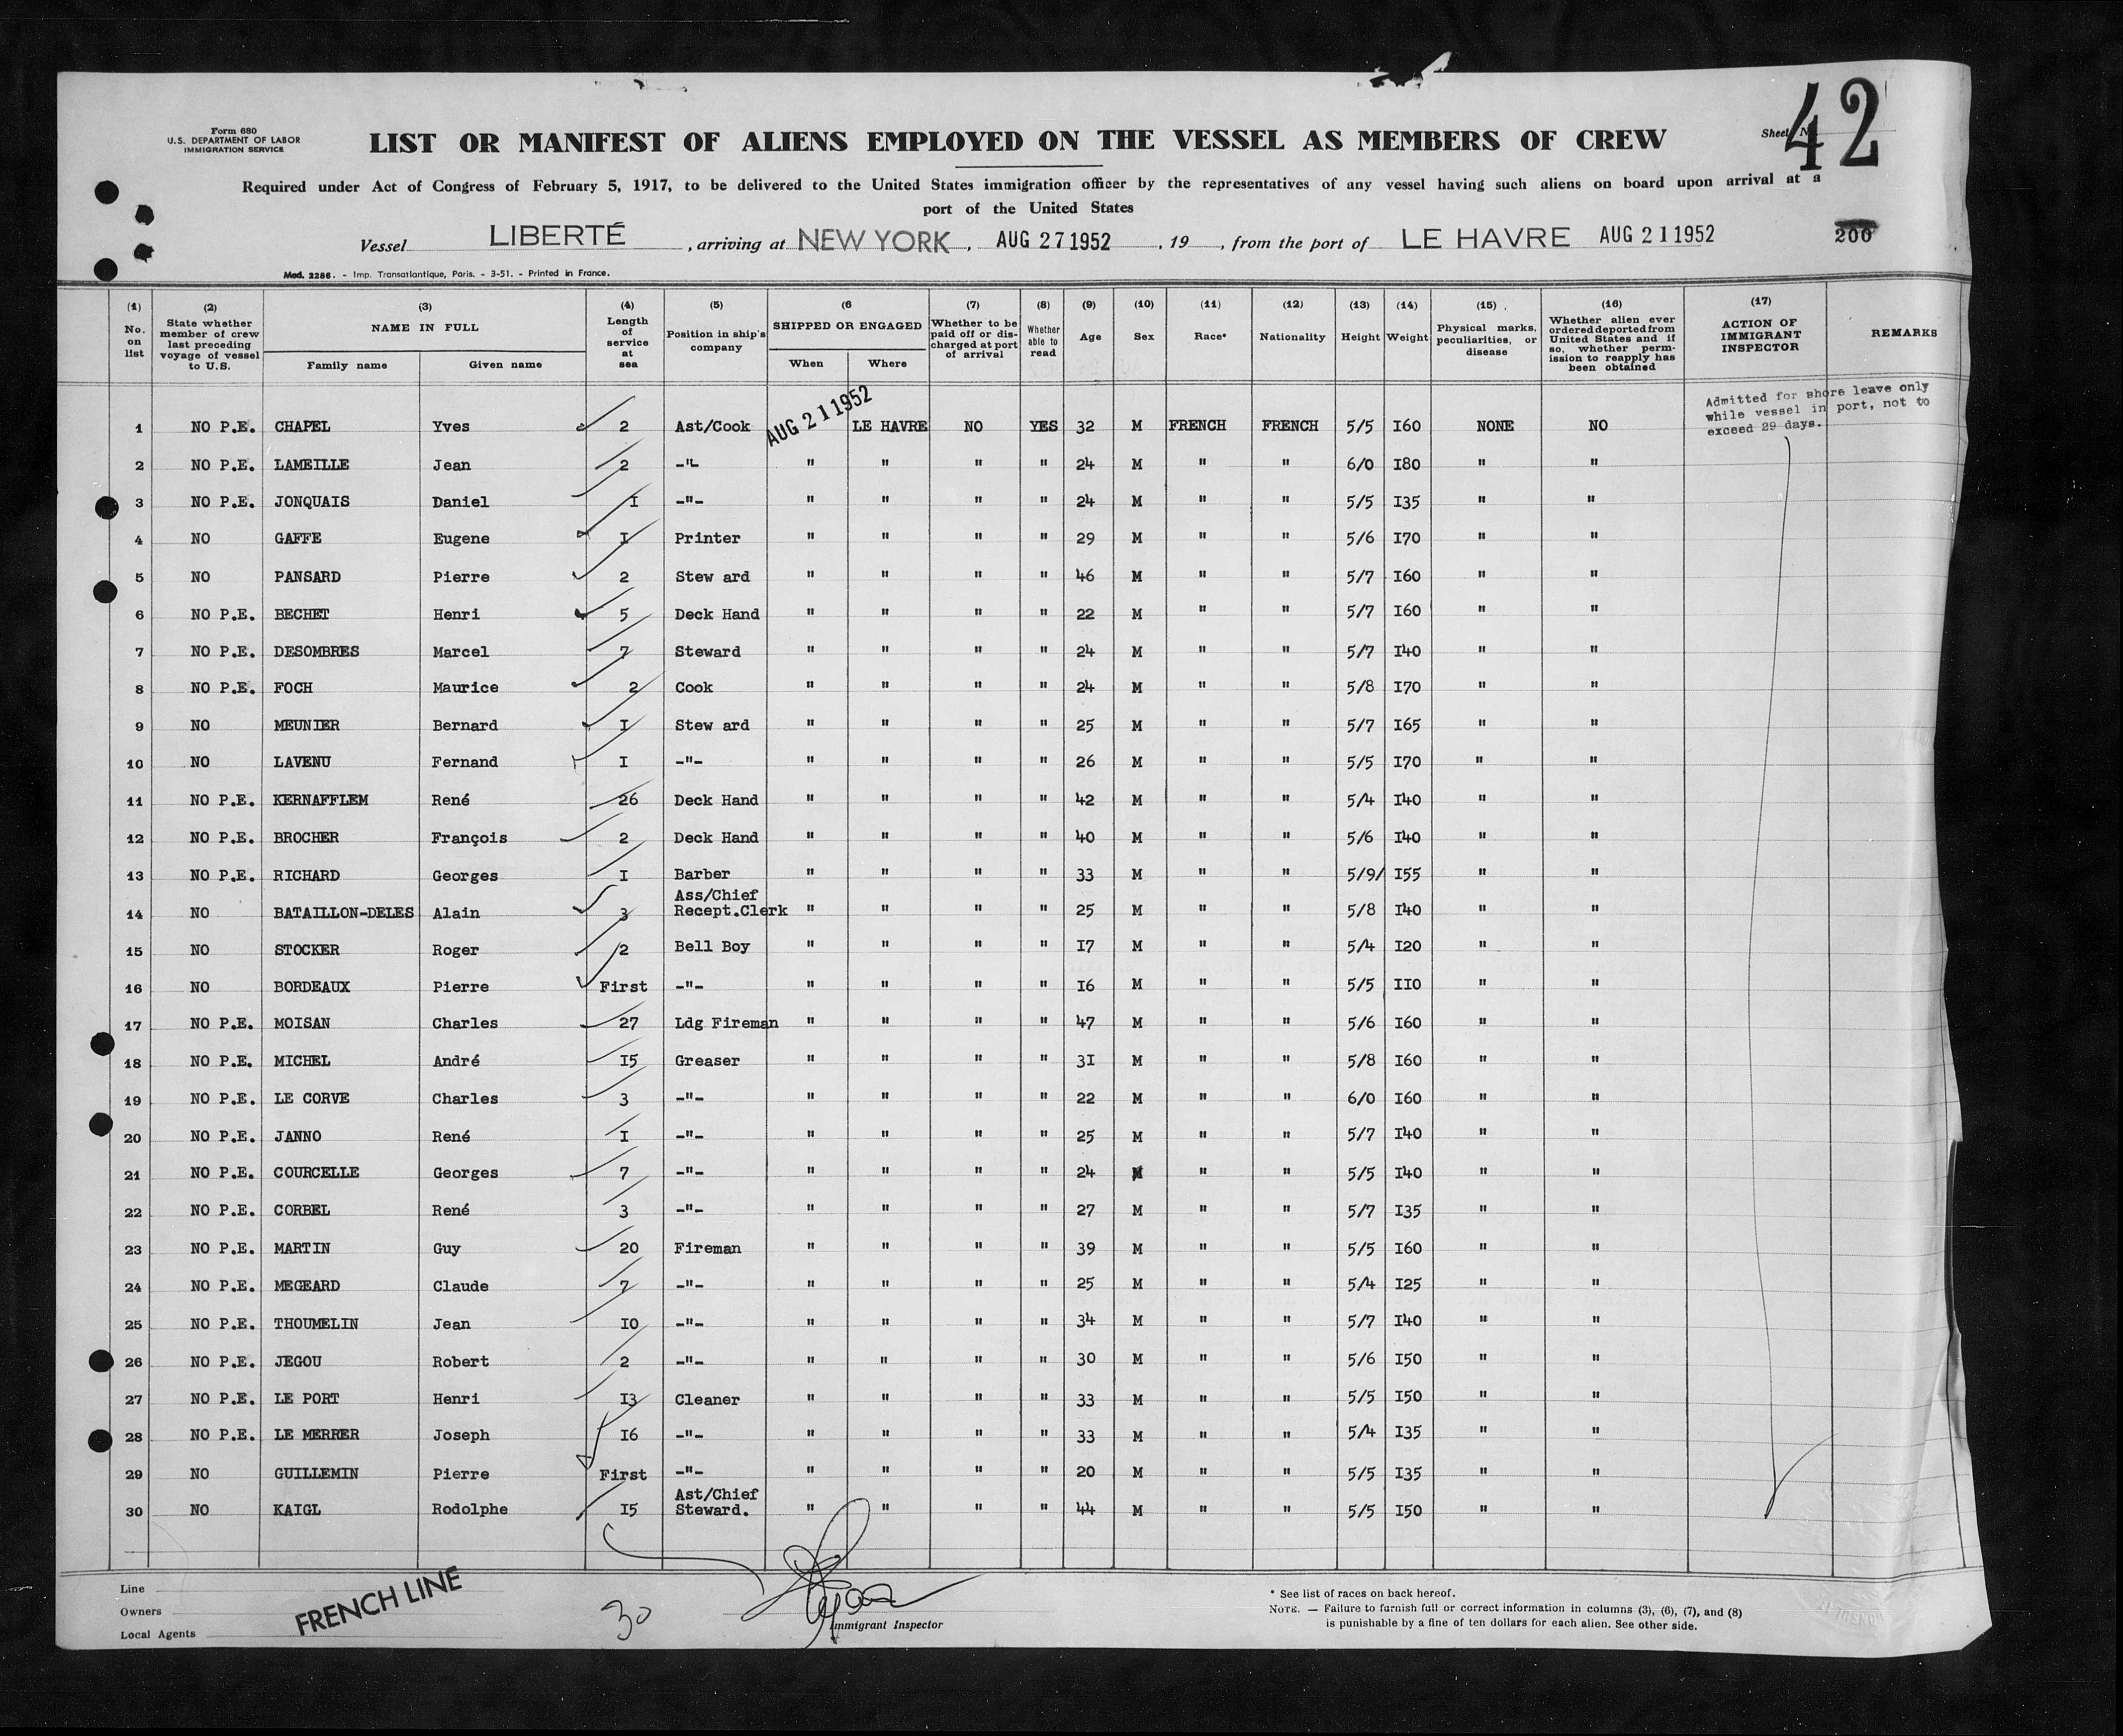 42
Form 680
U.S. DEPARTMENT OF LABOR
IMMIGRATION SERVICE
LIST OR MANIFEST OF ALIENS EMPLOYED ON THE VESSEL AS MEMBERS OF CREW
Sheet
Required under Act of Congress of February 5, 1917, to be delivered to the United States immigration officer by the representatives of any vessel having such aliens on board upon arrival at a
port of the United States
Vessel LIBERTÉ , arriving at NEW YORK , AUG 27 1952 , 19 , from the port of LE HAVRE AUG 21 1952 200
Mod. 2286. - Imp. Transatlantique, Paris. - 3-51. - Printed in France.
(1) No. on list (2) State whether member of crew last preceding voyage of vessel to U.S. (3) NAME IN FULL Family name Given name (4) Length of service at sea (5) Position in ship's company (6 SHIPPED OR ENGAGED When Where (7) Whether to be paid off or discharged at port of arrival (8) Whether able to read (9) Age (10) Sex (11) Race* (12) Nationality (13) Height (14) Weight (15) Physical marks, peculiarities, or disease (16) Whether alien ever ordered deported from United States and if so, whether permission to reapply has been obtained (17) ACTION OF IMMIGRANT INSPECTOR REMARKS
Admitted for shore leave only
while vessel in port, not to
exceed 29 days.
1 NO P.E. CHAPEL Yves 2 Ast/Cook AUG 21 1952 LE HAVRE NO YES 32 M FRENCH FRENCH 5/5 I60 NONE NO
2 NO P.E. LAMEILLE Jean 2 -"- " " " " 24 M " " 6/0 I80 " "
3 NO P.E. JONQUAIS Daniel I -"- " " " " 24 M " " 5/5 I35 " "
4 NO GAFFE Eugene I Printer " " " " 29 M " " 5/6 I70 " "
5 NO PANSARD Pierre 2 Stew ard " " " " 46 M " " 5/7 I60 " "
6 NO P.E. BECHET Henri 5 Deck Hand " " " " 22 M " " 5/7 I60 " "
7 NO P.E. DESOMBRES Marcel 7 Steward " " " " 24 M " " 5/7 I40 " "
8 NO P.E. FOCH Maurice 2 Cook " " " " 24 M " " 5/8 I70 " "
9 NO MEUNIER Bernard I Stew ard " " " " 25 M " " 5/7 I65 " "
10 NO LAVENU Fernand I -"- " " " " 26 M " " 5/5 I70 " "
11 NO P.E. KERNAFFLEM René 26 Deck Hand " " " " 42 M " " 5/4 I40 " "
12 NO P.E. BROCHER François 2 Deck Hand " " " " 40 M " " 5/6 I40 " "
13 NO P.E. RICHARD Georges I Barber " " " " 33 M " " 5/9/ I55 " "
14 NO BATAILLON-DELES Alain 3 Ass/Chief Recept.Clerk " " " " 25 M " " 5/8 I40 " "
15 NO STOCKER Roger 2 Bell Boy " " " " I7 M " " 5/4 I20 " "
16 NO BORDEAUX Pierre First -"- " " " " I6 M " " 5/5 II0 " "
17 NO P.E. MOISAN Charles 27 Ldg Fireman " " " " 47 M " " 5/6 I60 " "
18 NO P.E. MICHEL André I5 Greaser " " " " 3I M " " 5/8 I60 " "
19 NO P.E. LE CORVE Charles 3 -"- " " " " 22 M " " 6/0 I60 " "
20 NO P.E. JANNO René I -"- " " " " 25 M " " 5/7 I40 " "
21 NO P.E. COURCELLE Georges 7 -"- " " " " 24 M " " 5/5 I40 " "
22 NO P.E. CORBEL René 3 -"- " " " " 27 M " " 5/7 I35 " "
23 NO P.E. MARTIN Guy 20 Fireman " " " " 39 M " " 5/5 I60 " "
24 NO P.E. MEGEARD Claude 7 -"- " " " " 25 M " " 5/4 I25 " "
25 NO P.E. THOUMELIN Jean I0 -"- " " " " 34 M " " 5/7 I40 " "
26 NO P.E. JEGOU Robert 2 -"- " " " " 30 M " " 5/6 I50 " "
27 NO P.E. LE PORT Henri I3 Cleaner " " " " 33 M " " 5/5 I50 " "
28 NO P.E. LE MERRER Joseph I6 -"- " " " " 33 M " " 5/4 I35 " "
29 NO GUILLEMIN Pierre First -"- " " " " 20 M " " 5/5 I35 " "
30 NO KAIGL Rodolphe I5 Ast/Chief Steward. " " " " 44 M " " 5/5 I50 " "
Line
Owners
Local Agents
FRENCH LINE
30
Immigrant Inspector
* See list of races on back hereof.
NOTE. — Failure to furnish full or correct information in columns (3), (6), (7), and (8)
is punishable by a fine of ten dollars for each alien. See other side.